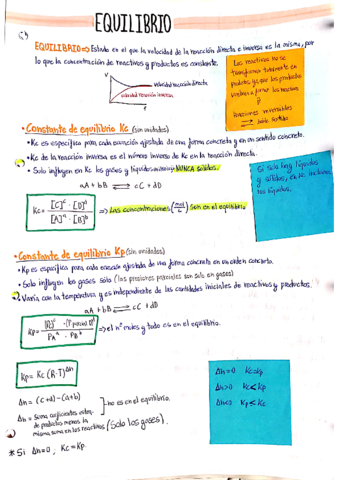 EQUILIBRIO
EQUILIBRIO => Estado en el que la velocidad de la reacción directa e inversa es la misma, por
lo que la concentración de reactivos y productos es constante.
V
velocidad reacción directa
velocidad reacción inversa
t
Los reactivos no se
transforman totalmente en
productos, ya que los productos
vuelven a formar los reactivos
y
reacciones reversibles
doble sentido
• Constante de equilibrio Kc (sin unidades)
• Kc es específica para cada ecuación ajustada de una forma concreta y en un sentido concreto.
• Kc de la reacción inversa es el número inverso de Kc en la reacción directa.
• Solo influyen en Kc los gases y líquidos NUNCA SÓLIDOS.
aA + bB ⇌ cC + dD
Kc = [C]^c · [D]^d / [A]^a · [B]^b => Las concentraciones (mol/L) son en el equilibrio.
Si solo hay líquidos
y sólidos, en Kc incluimos
los líquidos.
• Constante de equilibrio Kp (sin unidades)
• Kp es específica para cada ecuación ajustada de una forma concreta en un orden concreto.
• Solo influyen los gases sólo (las presiones parciales son solo en gases)
• Varía con la temperatura y es independiente de las cantidades iniciales de reactivos y productos.
aA + bB ⇌ cC + dD
=> el nº moles y todo es en el equilibrio.
Kp = Kc (R·T)^Δn
Δn = (c+d) - (a+b)
- no es en el equilibrio.
Δn = Suma coeficientes esteq.
de productos menos la
misma suma en los reactivos (Solo los gases).
* Si Δn=0, Kc = Kp.
Δn=0 Kc=Kp
Δn>0 Kc<Kp
Δn<0 Kp<Kc